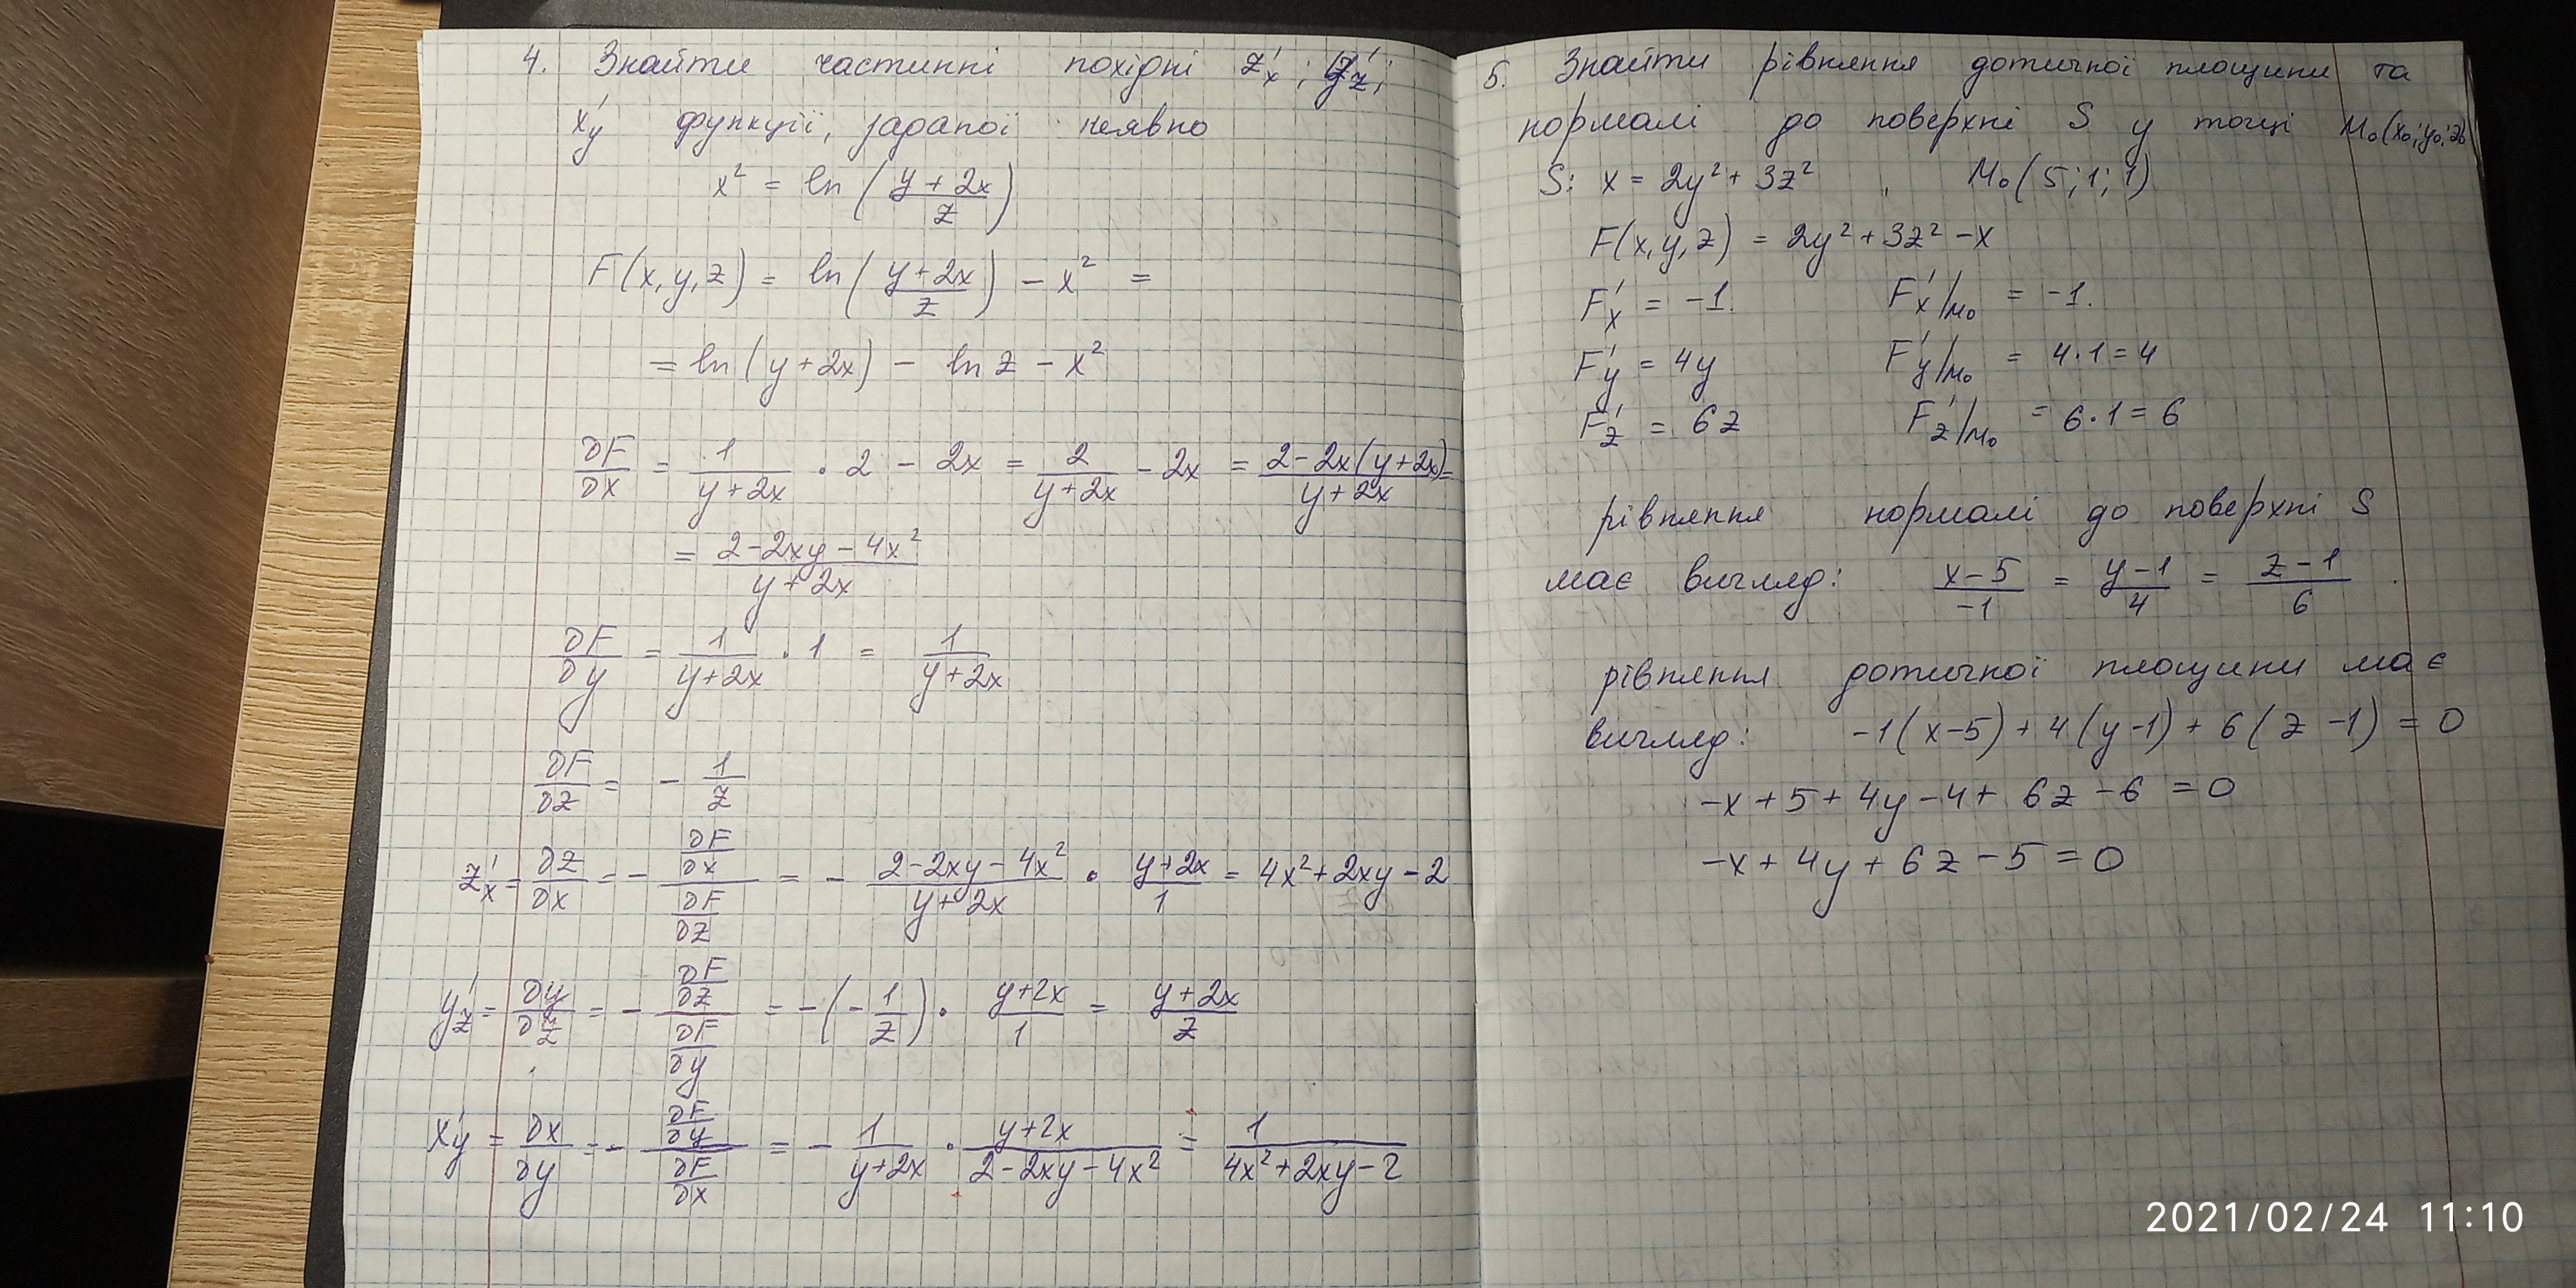 4. Знайти частинні похідні z'ₓ; y'_z;
x'_y функції, заданої неявно
x² = ln((y + 2x)/z)
F(x, y, z) = ln((y + 2x)/z) - x² =
= ln(y + 2x) - ln z - x²
∂F/∂x = 1/(y + 2x) · 2 - 2x = 2/(y + 2x) - 2x = (2 - 2x(y + 2x))/(y + 2x) =
= (2 - 2xy - 4x²)/(y + 2x)
∂F/∂y = 1/(y + 2x) · 1 = 1/(y + 2x)
∂F/∂z = - 1/z
z'ₓ = ∂z/∂x = - (∂F/∂x)/(∂F/∂z) = - (2 - 2xy - 4x²)/(y + 2x) · (y + 2x)/1 = 4x² + 2xy - 2
y'_z = ∂y/∂z = - (∂F/∂z)/(∂F/∂y) = -(-1/z) · (y + 2x)/1 = (y + 2x)/z
x'_y = ∂x/∂y = - (∂F/∂y)/(∂F/∂x) = - 1/(y + 2x) · (y + 2x)/(2 - 2xy - 4x²) = 1/(4x² + 2xy - 2)
5. Знайти рівняння дотичної площини та
нормалі до поверхні S у точці M₀(x₀; y₀; z₀)
S: x = 2y² + 3z², M₀(5; 1; 1)
F(x, y, z) = 2y² + 3z² - x
F'ₓ = -1. F'ₓ/M₀ = -1.
F'_y = 4y F'_y/M₀ = 4·1 = 4
F'_z = 6z F'_z/M₀ = 6·1 = 6
рівняння нормалі до поверхні S
має вигляд: (x - 5)/-1 = (y - 1)/4 = (z - 1)/6.
рівняння дотичної площини має
вигляд: -1(x - 5) + 4(y - 1) + 6(z - 1) = 0
-x + 5 + 4y - 4 + 6z - 6 = 0
-x + 4y + 6z - 5 = 0
2021/02/24 11:10